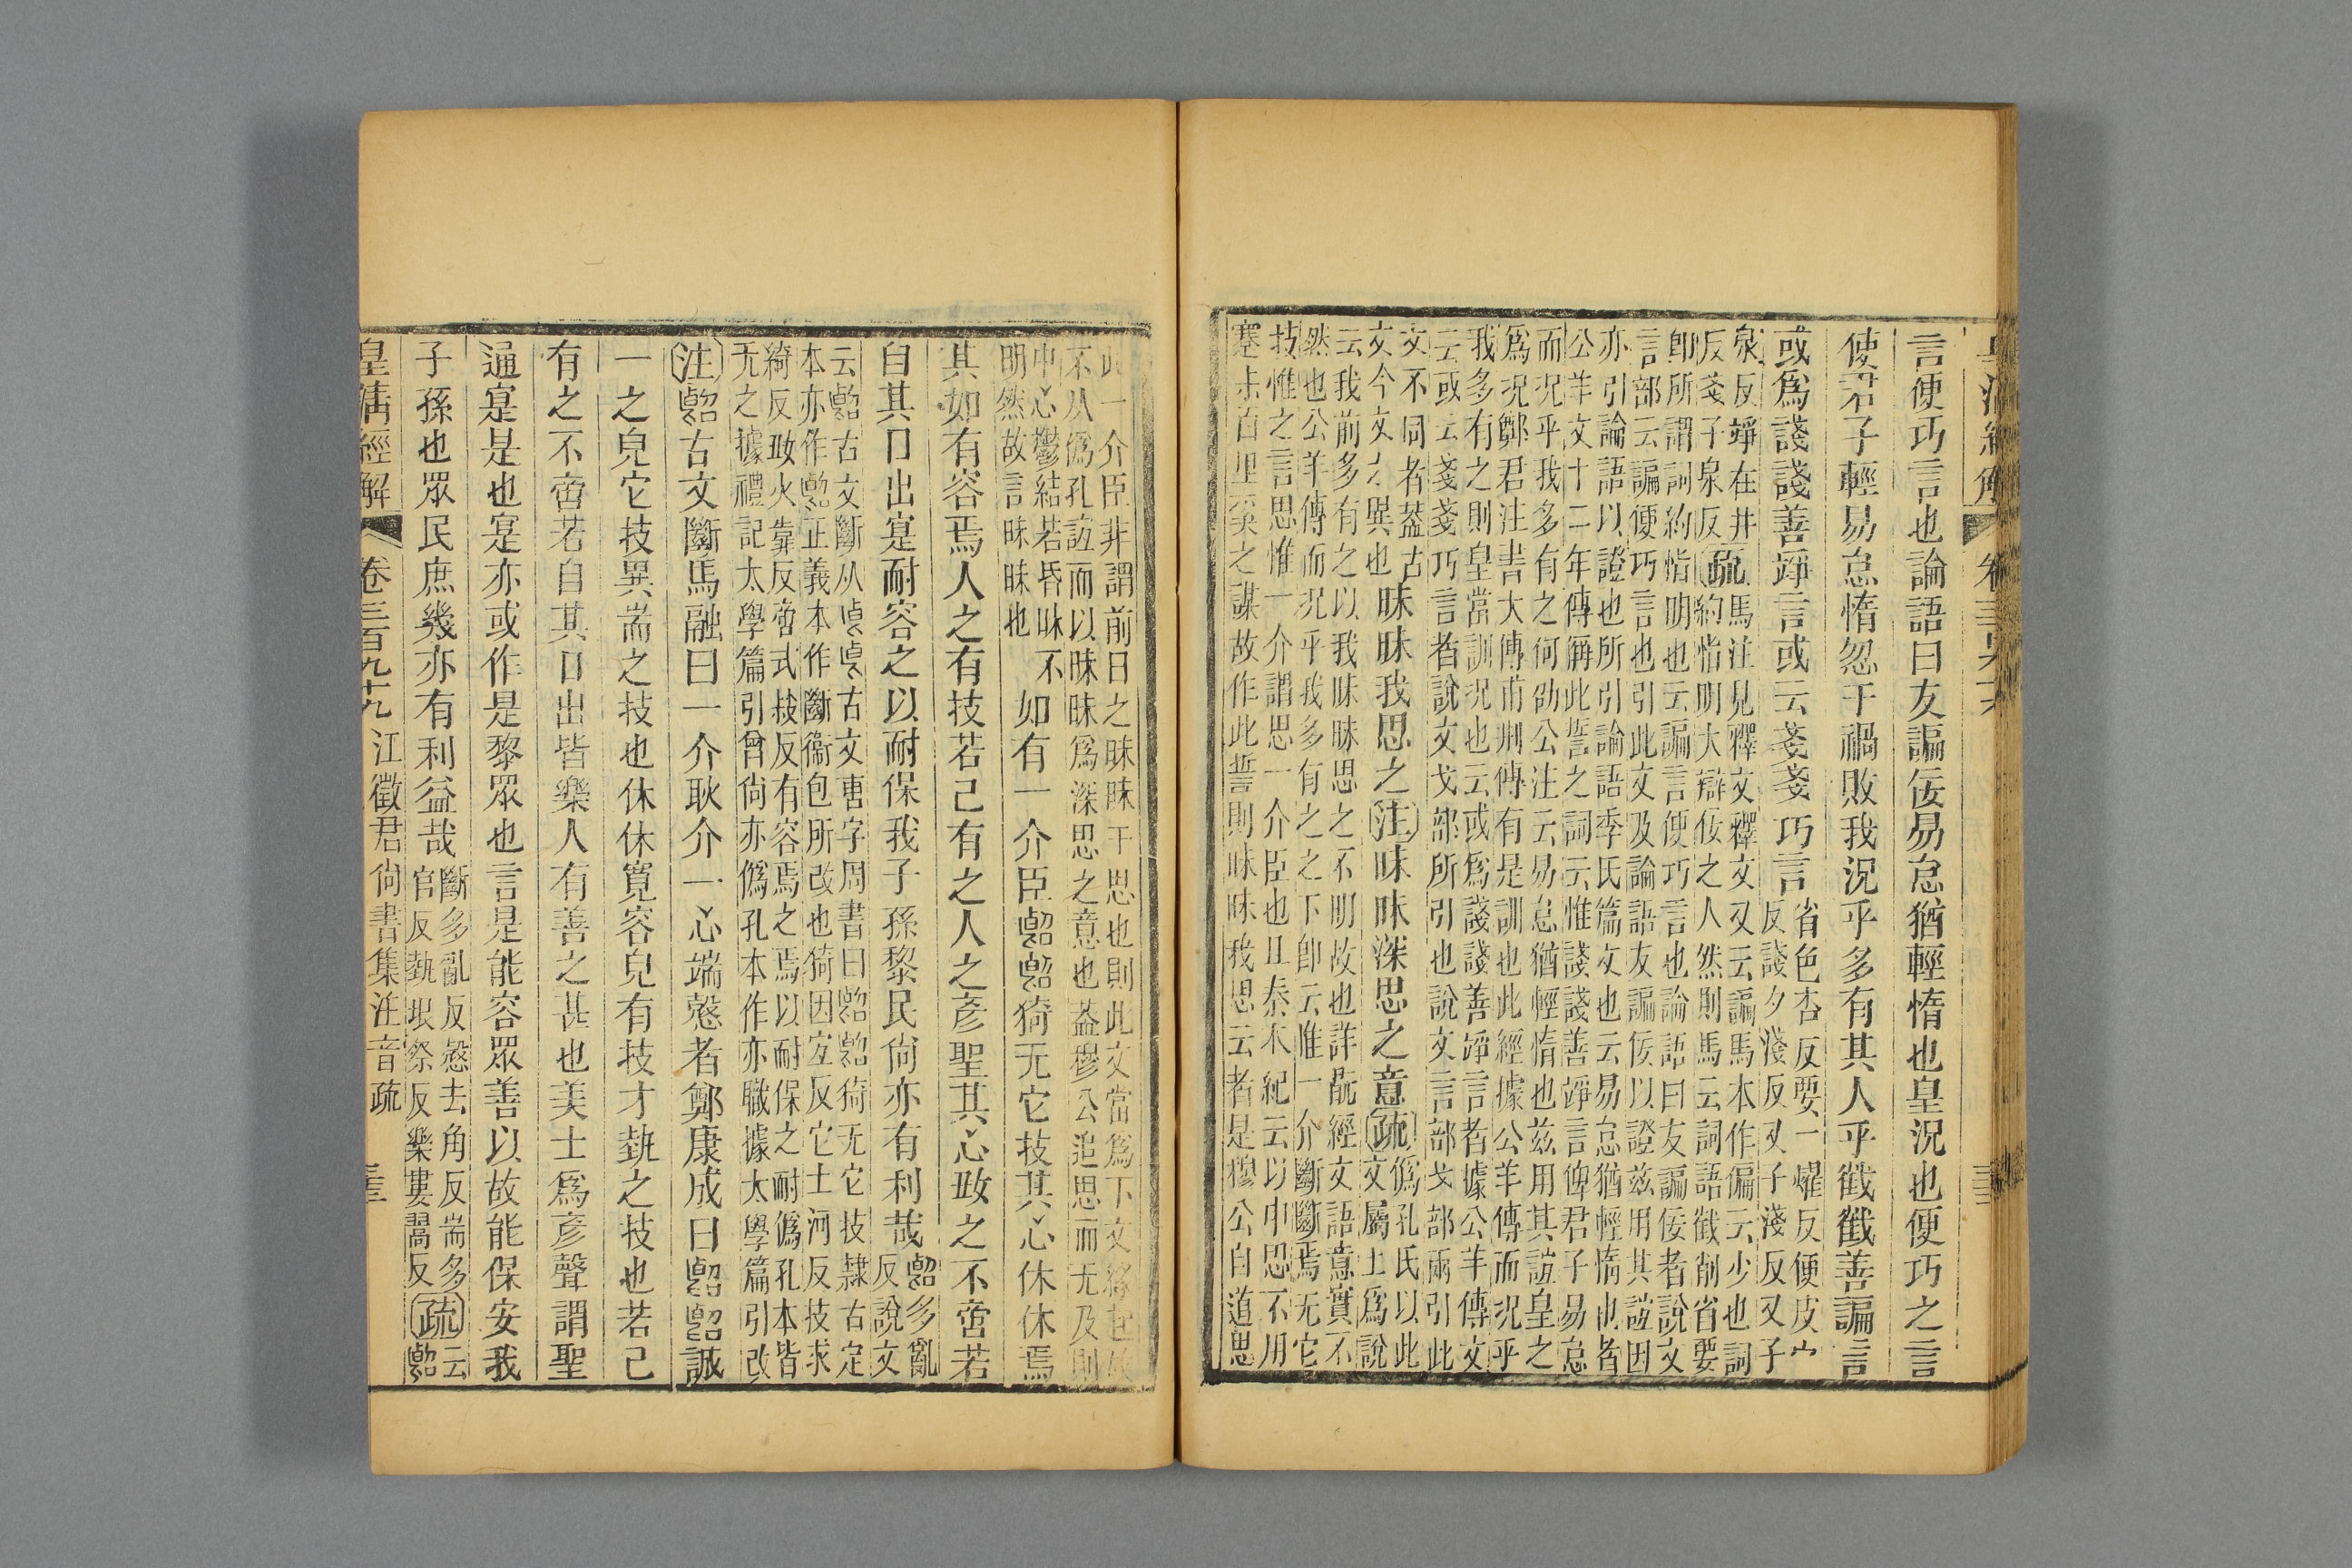 言便巧言也論語曰友諞佞易怠猶輕惰也皇況也便巧之言
使君子輕易怠惰忽于禍敗我況乎多有其人乎截截善諞言
或爲諓諓善竫言或云戔戔巧言
省色杏反要一燿反便皮宀
反諓夕淺反又子淺反又子
泉反竫在井
反戔子泉反
疏
馬注見釋文釋文又云諞馬本作偏云少也詞
約㥶明大辯佞之人然則馬云詞語截削省要
卽所謂詞約㥶明也云諞言便巧言也論語曰友諞佞者說文
言部云諞便巧言也引此文及論語友諞佞以證兹用其誼因
亦引論語以證也所引論語季氏篇文也云易怠猶輕惰也者
公羊文十二年傳稱此誓之詞云惟諓諓善竫言俾君子易怠
而況乎我多有之何劭公注云易怠猶輕惰也兹用其誼皇之
爲況鄭君注書大傳甫刑傳有是訓也此經據公羊傳而況乎
我多有之則皇當訓況也云或爲諓諓善竫言者據公羊傳文
云或云戔戔巧言者說文戈部所引也說文言部戈部兩引此
文不同者葢古
文今文之異也
昧昧我思之注昧昧深思之意疏
僞孔氏以此
文屬上爲說
云我前多有之以我昧昧思之不明故也詳翫經文語意實不
然也公羊傳而況乎我多有之之下卽云惟一介斷斷焉无它
技惟之言思惟一介謂思一介臣也且秦本紀云以申思不用
蹇叔百里奚之謀故作此誓則昧昧我思云者是穆公自道思
此一介臣非謂前日之昧昧于思也則此文當爲下文緣起故
不从僞孔誼而以昧昧爲深思之意也葢穆公追思而无及則
中心鬱結若昏昧不
明然故言昧昧也
如有一介臣𠸿𠸿猗无它技其心休休焉
其如有容焉人之有技若己有之人之彥聖其心𢻱之不啻若
自其口出寔耐容之以耐保我子孫黎民尙亦有利哉
𠸿多亂
反說文
云𠸿古文斷从𠧢𠧢古文叀字周書曰𠸿𠸿猗无它技隸古定
本亦作𠸿正義本作斷衞包所改也猗因宜反它土河反技求
綺反𢻱火靠反啻式豉反有容焉之焉以耐保之耐僞孔本皆
无之據禮記太學篇引曾尙亦僞孔本作亦職據太學篇引改
注𠸿古文斷馬融曰一介耿介一心端愨者鄭康成曰𠸿𠸿誠
一之皃它技異耑之技也休休寬容皃有技才埶之技也若己
有之不啻若自其口出皆樂人有善之甚也美士爲彥聲謂聖
通寔是也寔亦或作是黎眾也言是能容眾善以故能保安我
子孫也眾民庶幾亦有利益哉
斷多亂反愨去角反耑多
官反埶垠祭反樂婁罶反
疏
云
𠸿
皇清經解 卷三百九十九 江徵君尙書集注音疏